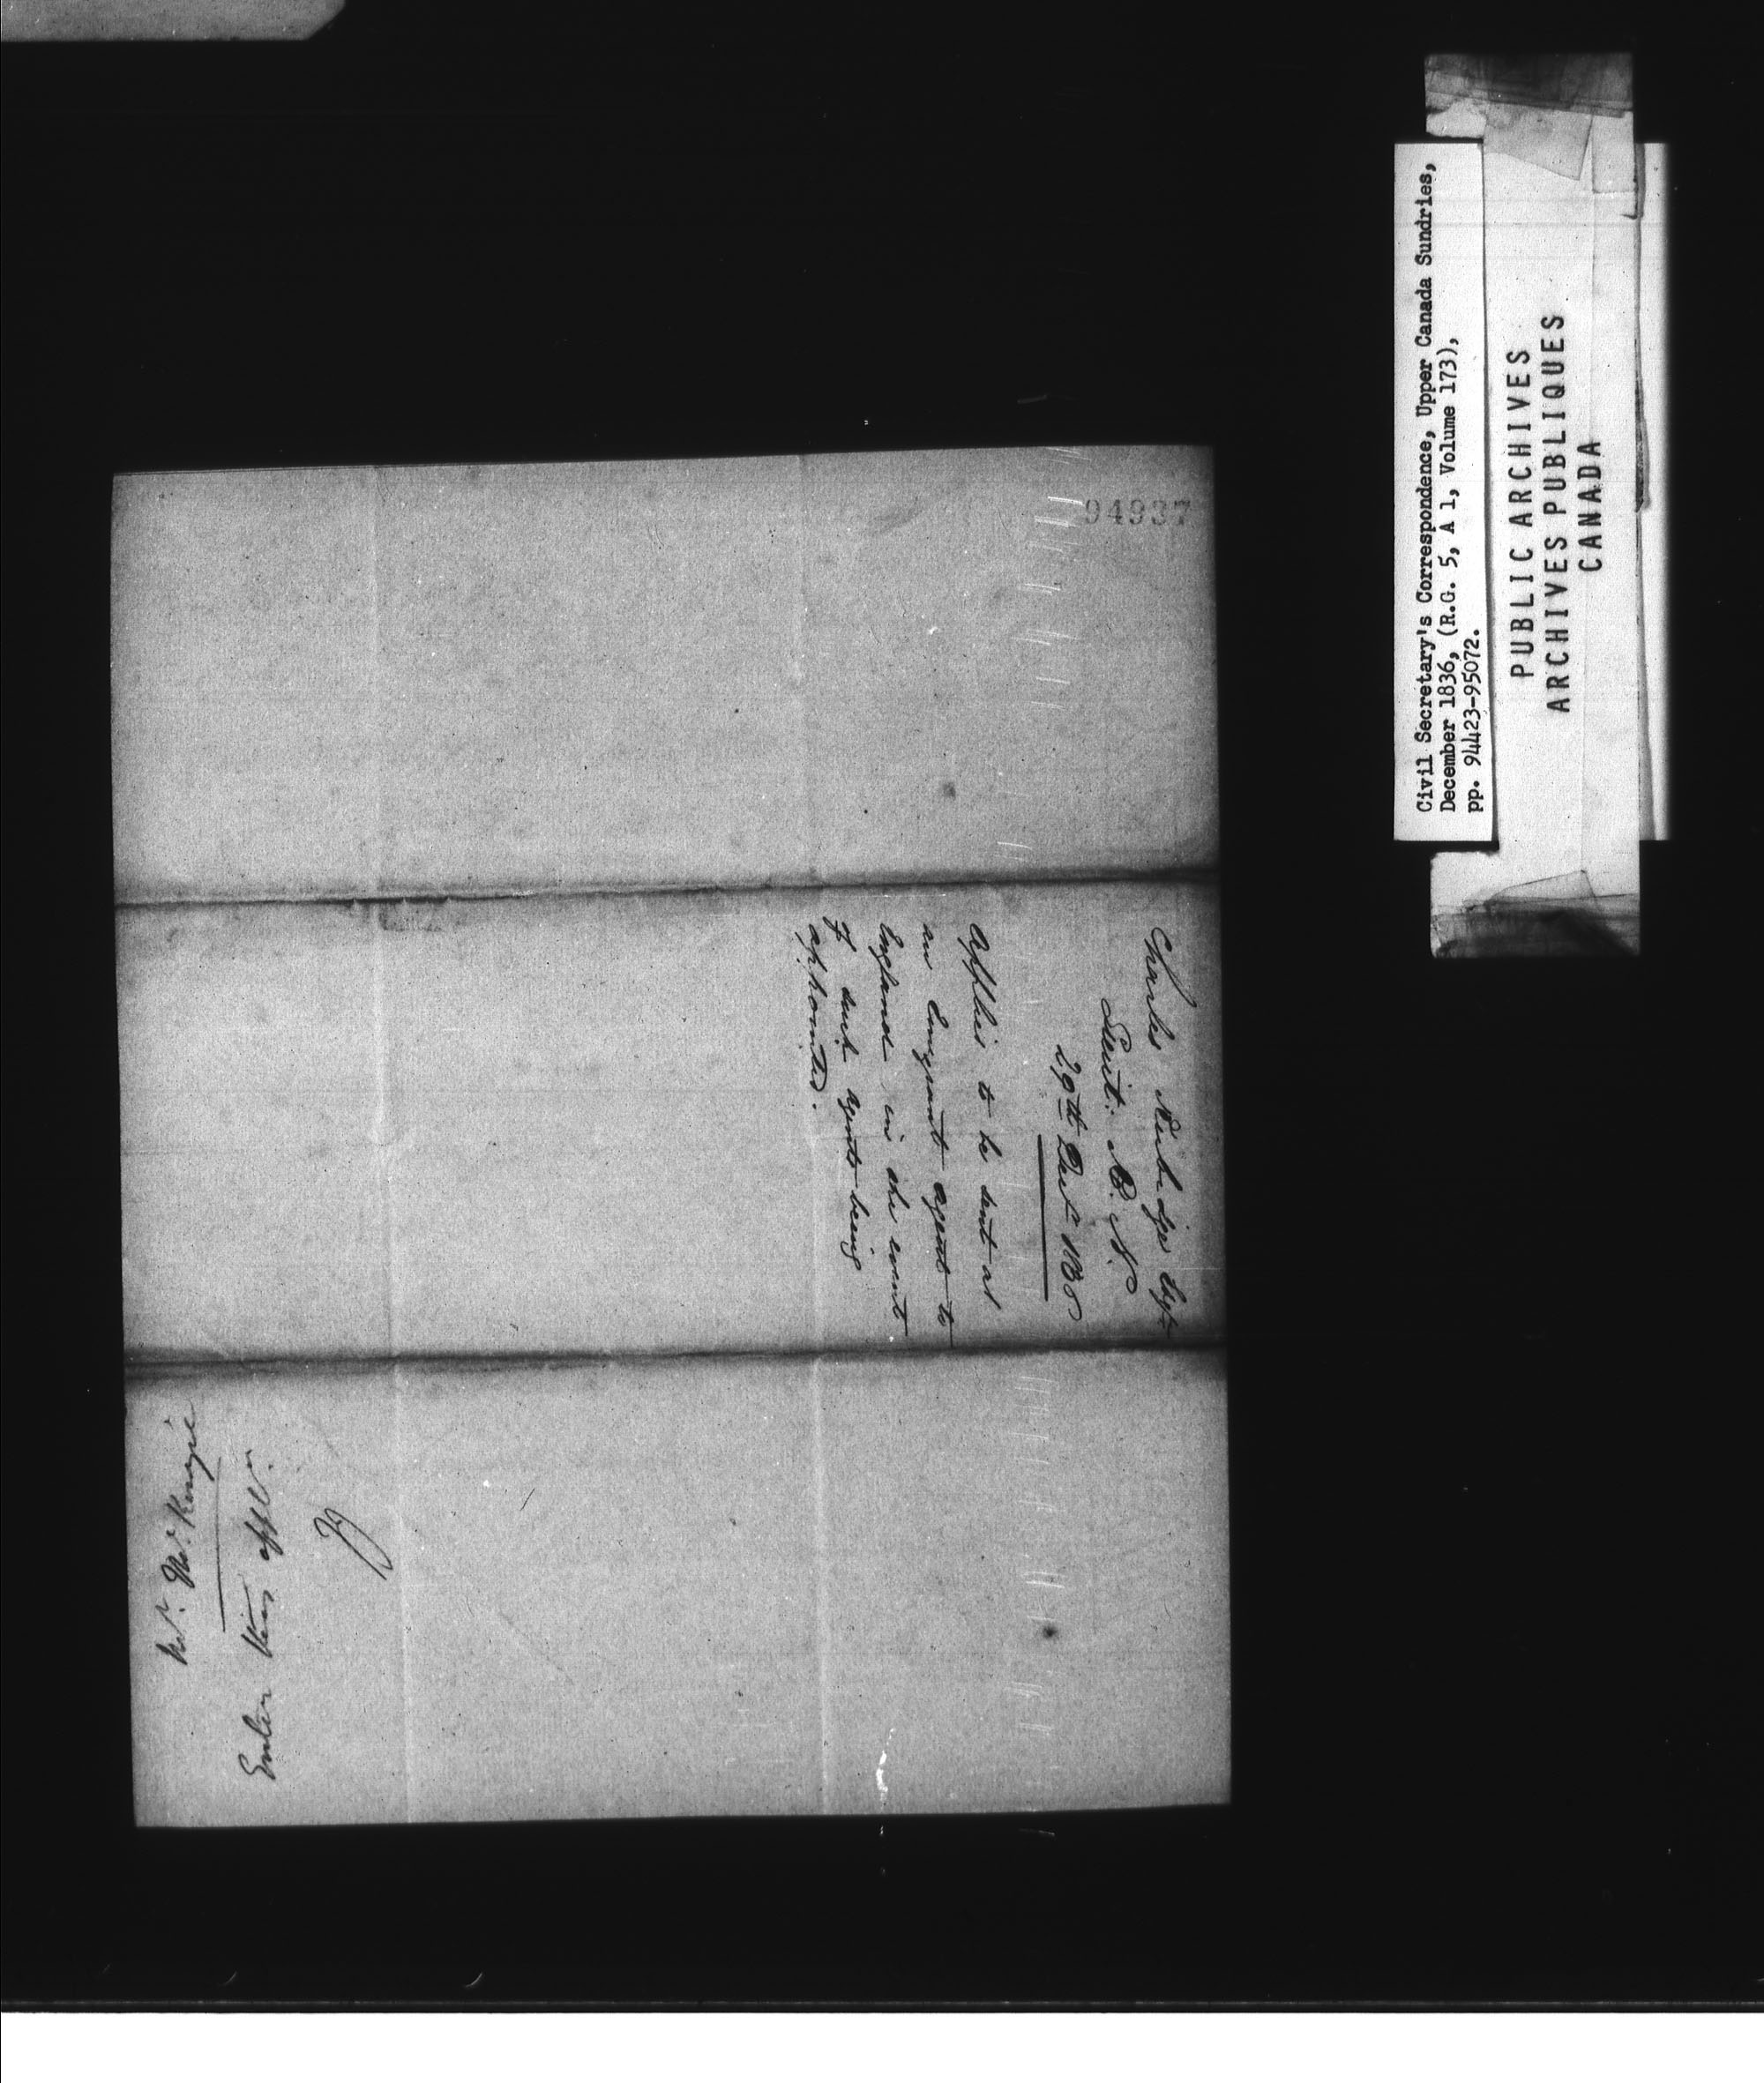 94937
Charles Rubidge Esqr
Lieut: R. N.
29th Decr 1836
Applies to be sent as
an Emigrant agent to
England in the event
of such agents being
appointed.
Mr. McKenzie
Enter this appln.
Civil Secretary's Correspondence, Upper Canada Sundries,
December 1836, (R.G. 5, A 1, Volume 173),
pp. 94423-95072.
PUBLIC ARCHIVES
ARCHIVES PUBLIQUES
CANADA